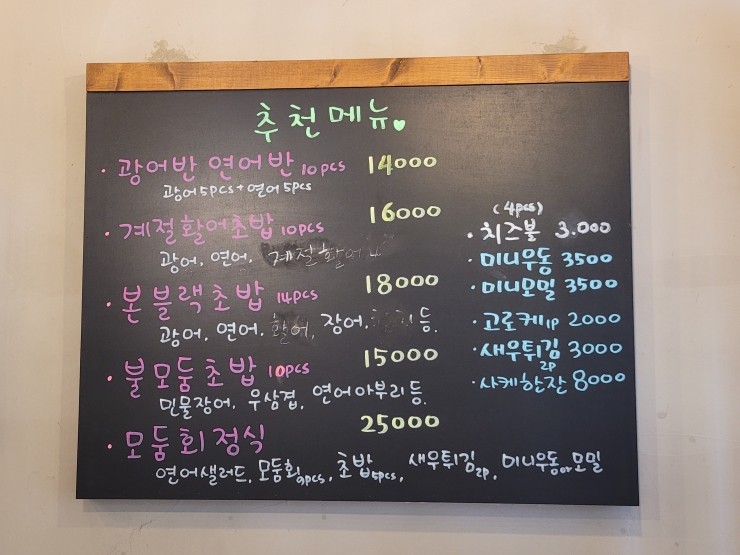 추천메뉴
· 광어반 연어반 10pcs 14000
광어5pcs+연어5pcs
· 계절활어초밥 10pcs 16000
광어, 연어, 계절활어
· 본블랙초밥 14pcs 18000
광어, 연어, 활어, 장어, 등.
· 불모둠초밥 10pcs 15000
민물장어, 우삼겹, 연어아부리 등.
· 모둠회정식 25000
연어샐러드, 모둠회9pcs, 초밥5pcs, 새우튀김2p, 미니우동or모밀
(4pcs)
· 치즈볼 3.000
· 미니우동 3500
· 미니모밀 3500
· 고로케1p 2000
· 새우튀김 3000
2p
· 사케한잔 8000